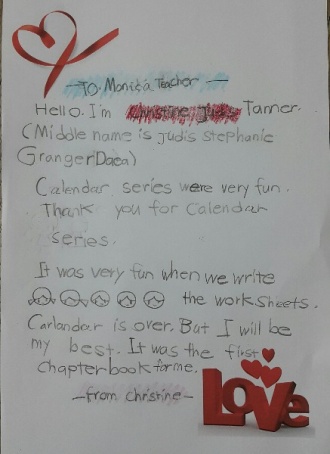 —To. Monica Teacher —
Hello. I'm Christine Judis Tanner.
(Middle name is Judis Stephanie
Granger Daea)
Calendar series were very fun.
Thank you for Calendar
series.
It was very fun when we write
the worksheets.
Carlandar is over. But I will be
my best. It was the first
Chapter book for me.
—from Christine—
Love